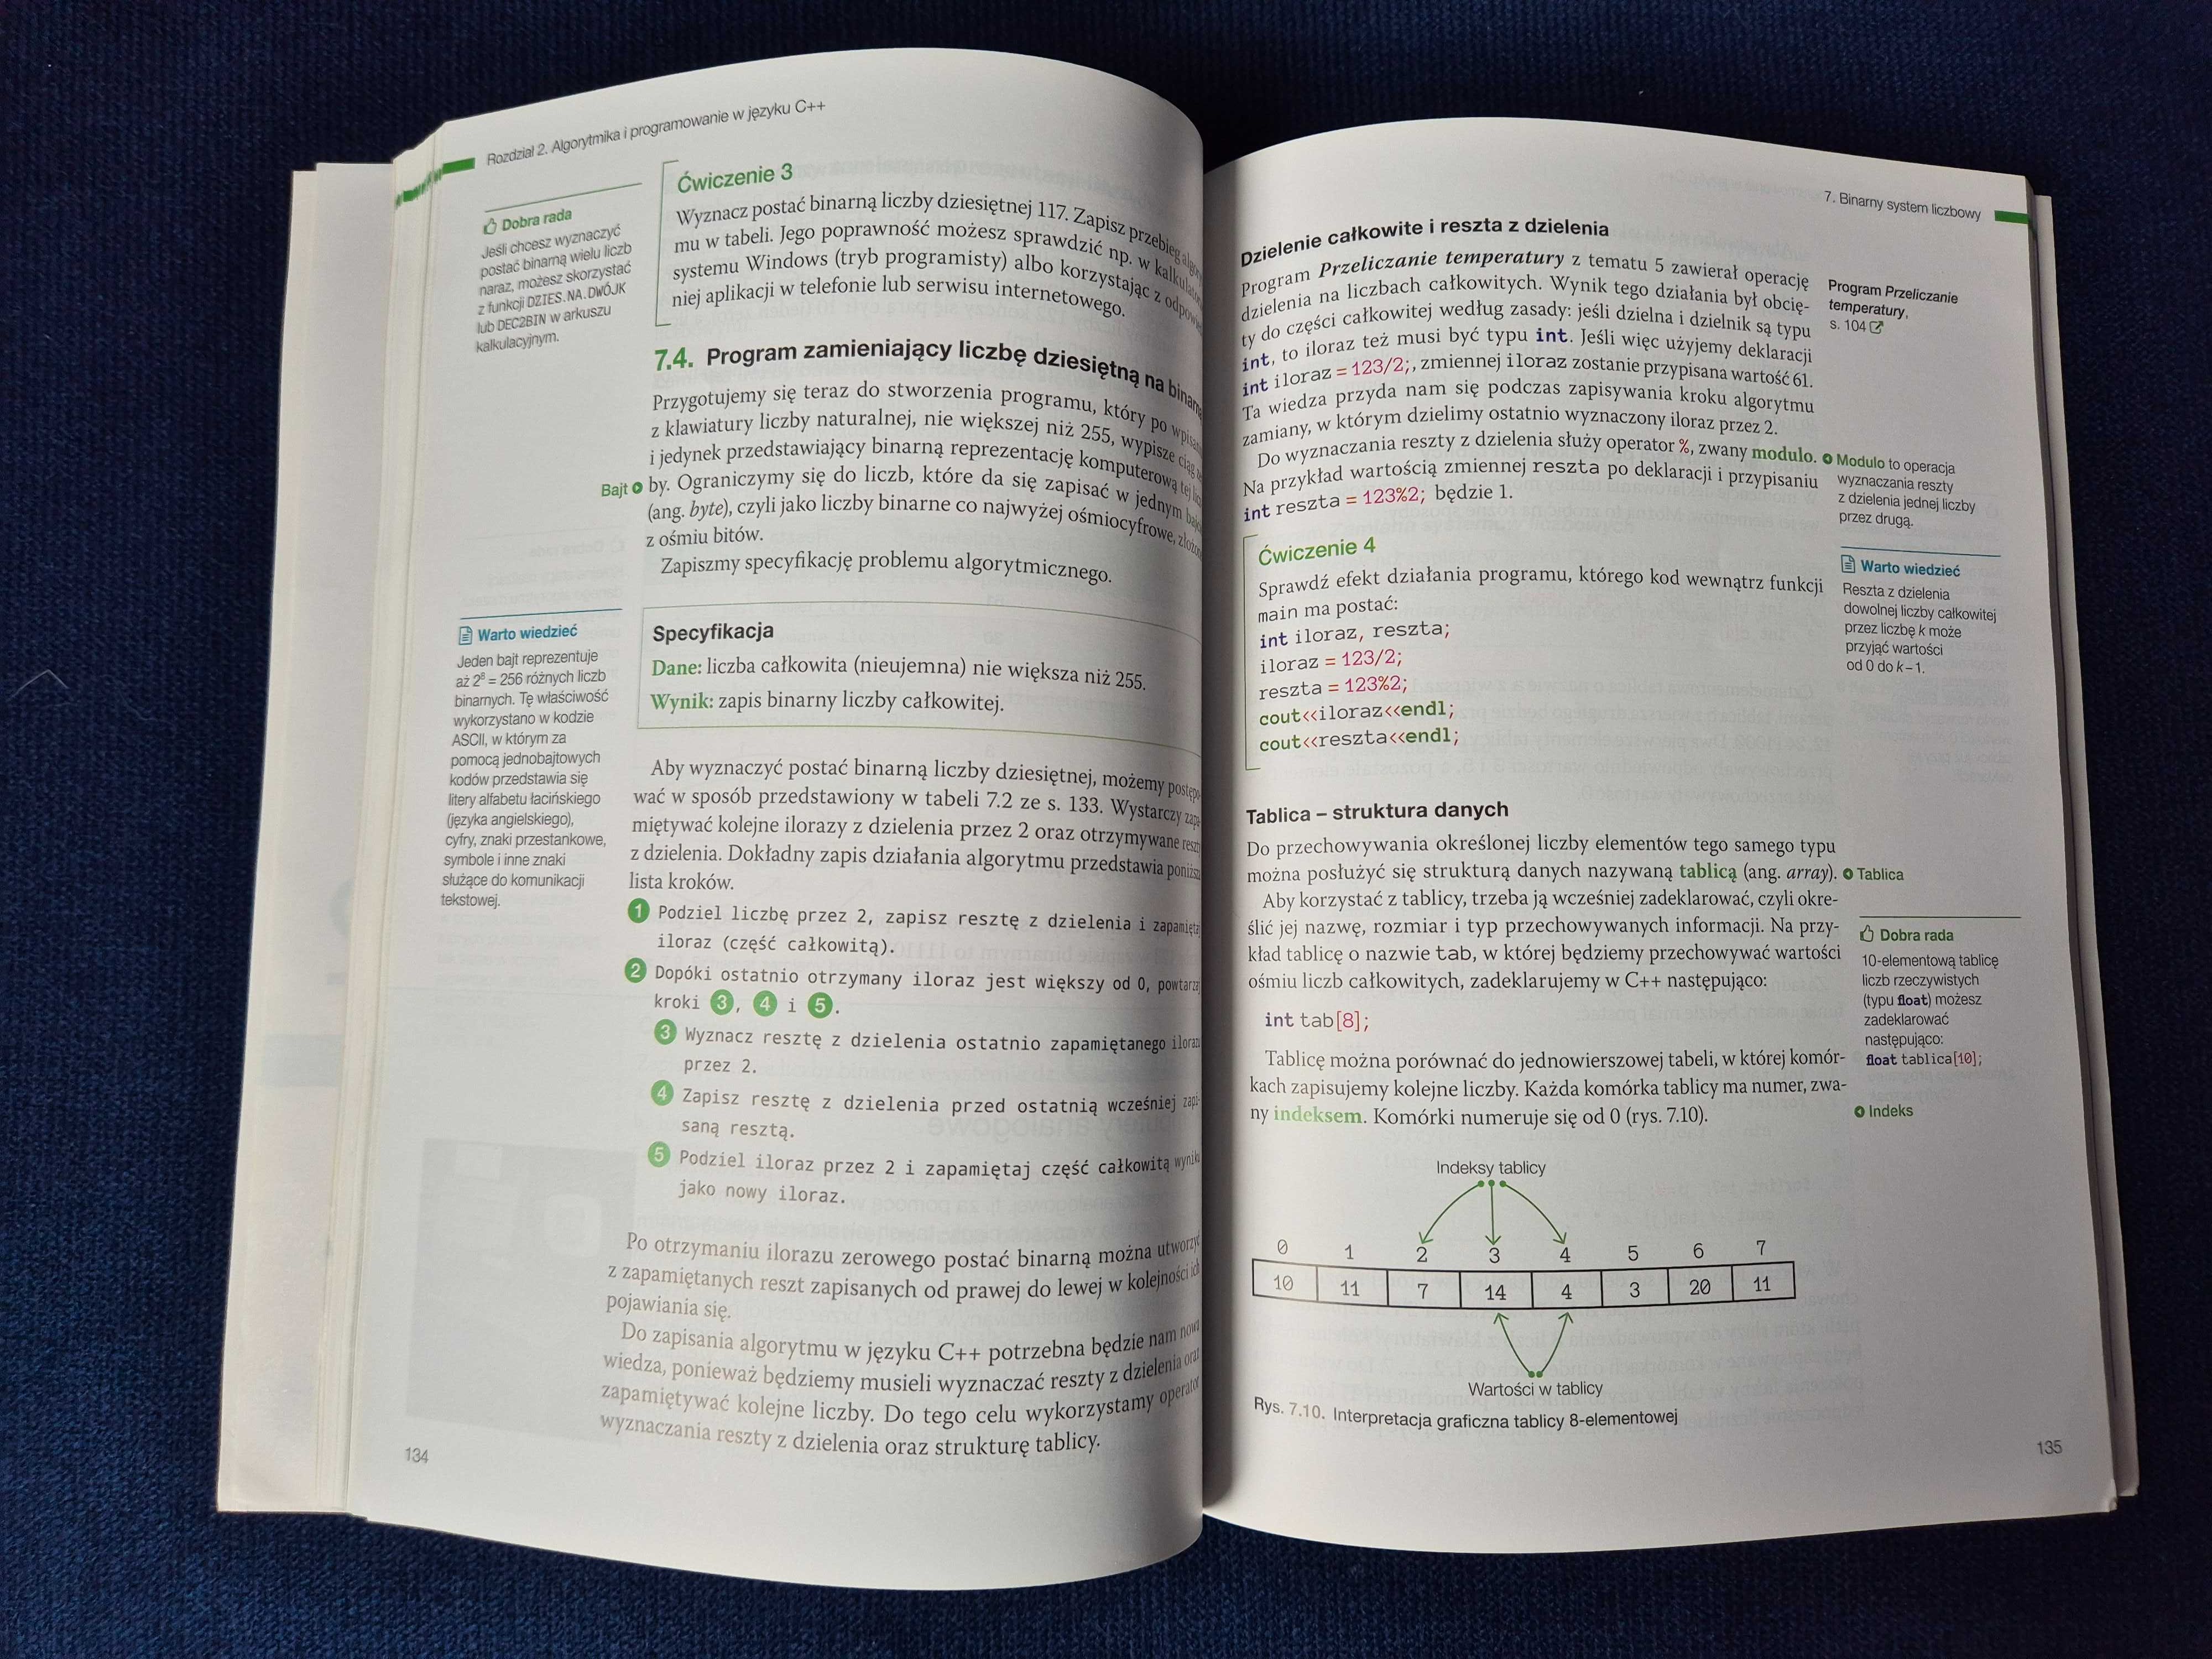 Rozdział 2. Algorytmika i programowanie w języku C++
Dobra rada
Jeśli chcesz wyznaczyć
postać binarną wielu liczb
naraz, możesz skorzystać
z funkcji DZIES.NA.DWÓJK
lub DEC2BIN w arkuszu
kalkulacyjnym.
Ćwiczenie 3
Wyznacz postać binarną liczby dziesiętnej 117. Zapisz przebieg
mu w tabeli. Jego poprawność możesz sprawdzić np. w
systemu Windows (tryb programisty) albo korzystając z
niej aplikacji w telefonie lub serwisu internetowego.
7.4. Program zamieniający liczbę dziesiętną na
Przygotujemy się teraz do stworzenia programu, który po
z klawiatury liczby naturalnej, nie większej niż 255, wypisze ciąg
i jedynek przedstawiający binarną reprezentację komputerową tej
Bajt by. Ograniczymy się do liczb, które da się zapisać w jednym
(ang. byte), czyli jako liczby binarne co najwyżej ośmiocyfrowe,
z ośmiu bitów.
Zapiszmy specyfikację problemu algorytmicznego.
Warto wiedzieć
Jeden bajt reprezentuje
aż 2⁸ = 256 różnych liczb
binarnych. Tę właściwość
wykorzystano w kodzie
ASCII, w którym za
pomocą jednobajtowych
kodów przedstawia się
litery alfabetu łacińskiego
(języka angielskiego),
cyfry, znaki przestankowe,
symbole i inne znaki
służące do komunikacji
tekstowej.
Specyfikacja
Dane: liczba całkowita (nieujemna) nie większa niż 255.
Wynik: zapis binarny liczby całkowitej.
Aby wyznaczyć postać binarną liczby dziesiętnej, możemy
wać w sposób przedstawiony w tabeli 7.2 ze s. 133. Wystarczy
miętywać kolejne ilorazy z dzielenia przez 2 oraz otrzymywane
z dzielenia. Dokładny zapis działania algorytmu przedstawia
lista kroków.
1 Podziel liczbę przez 2, zapisz resztę z dzielenia i
iloraz (część całkowitą).
2 Dopóki ostatnio otrzymany iloraz jest większy od 0,
kroki 3, 4 i 5.
3 Wyznacz resztę z dzielenia ostatnio zapamiętanego
przez 2.
4 Zapisz resztę z dzielenia przed ostatnią wcześniej
saną resztą.
5 Podziel iloraz przez 2 i zapamiętaj część całkowitą
jako nowy iloraz.
Po otrzymaniu ilorazu zerowego postać binarną można utworzyć
z zapamiętanych reszt zapisanych od prawej do lewej w kolejności ich
pojawiania się.
Do zapisania algorytmu w języku C++ potrzebna będzie nam nowa
wiedza, ponieważ będziemy musieli wyznaczać reszty z dzielenia oraz
zapamiętywać kolejne liczby. Do tego celu wykorzystamy operator
wyznaczania reszty z dzielenia oraz strukturę tablicy.
134
7. Binarny system liczbowy
Dzielenie całkowite i reszta z dzielenia
Program Przeliczanie temperatury z tematu 5 zawierał operację
dzielenia na liczbach całkowitych. Wynik tego działania był obcię-
ty do części całkowitej według zasady: jeśli dzielna i dzielnik są typu
int, to iloraz też musi być typu int. Jeśli więc użyjemy deklaracji
int iloraz = 123/2;, zmiennej iloraz zostanie przypisana wartość 61.
Ta wiedza przyda nam się podczas zapisywania kroku algorytmu
zamiany, w którym dzielimy ostatnio wyznaczony iloraz przez 2.
Do wyznaczania reszty z dzielenia służy operator %, zwany modulo.
Na przykład wartością zmiennej reszta po deklaracji i przypisaniu
int reszta = 123%2; będzie 1.
Program Przeliczanie
temperatury,
s. 104
Modulo to operacja
wyznaczania reszty
z dzielenia jednej liczby
przez drugą.
Ćwiczenie 4
Sprawdź efekt działania programu, którego kod wewnątrz funkcji
main ma postać:
int iloraz, reszta;
iloraz = 123/2;
reszta = 123%2;
cout<<iloraz<<endl;
cout<<reszta<<endl;
Warto wiedzieć
Reszta z dzielenia
dowolnej liczby całkowitej
przez liczbę k może
przyjąć wartości
od 0 do k–1.
Tablica – struktura danych
Do przechowywania określonej liczby elementów tego samego typu
można posłużyć się strukturą danych nazywaną tablicą (ang. array).
Tablica
Aby korzystać z tablicy, trzeba ją wcześniej zadeklarować, czyli okre-
ślić jej nazwę, rozmiar i typ przechowywanych informacji. Na przy-
kład tablicę o nazwie tab, w której będziemy przechowywać wartości
ośmiu liczb całkowitych, zadeklarujemy w C++ następująco:
int tab[8];
Tablicę można porównać do jednowierszowej tabeli, w której komór-
kach zapisujemy kolejne liczby. Każda komórka tablicy ma numer, zwa-
ny indeksem. Komórki numeruje się od 0 (rys. 7.10).
Dobra rada
10-elementową tablicę
liczb rzeczywistych
(typu float) możesz
zadeklarować
następująco:
float tablica[10];
Indeks
Indeksy tablicy
0 1 2 3 4 5 6 7
10 11 7 14 4 3 20 11
Wartości w tablicy
Rys. 7.10. Interpretacja graficzna tablicy 8-elementowej
135